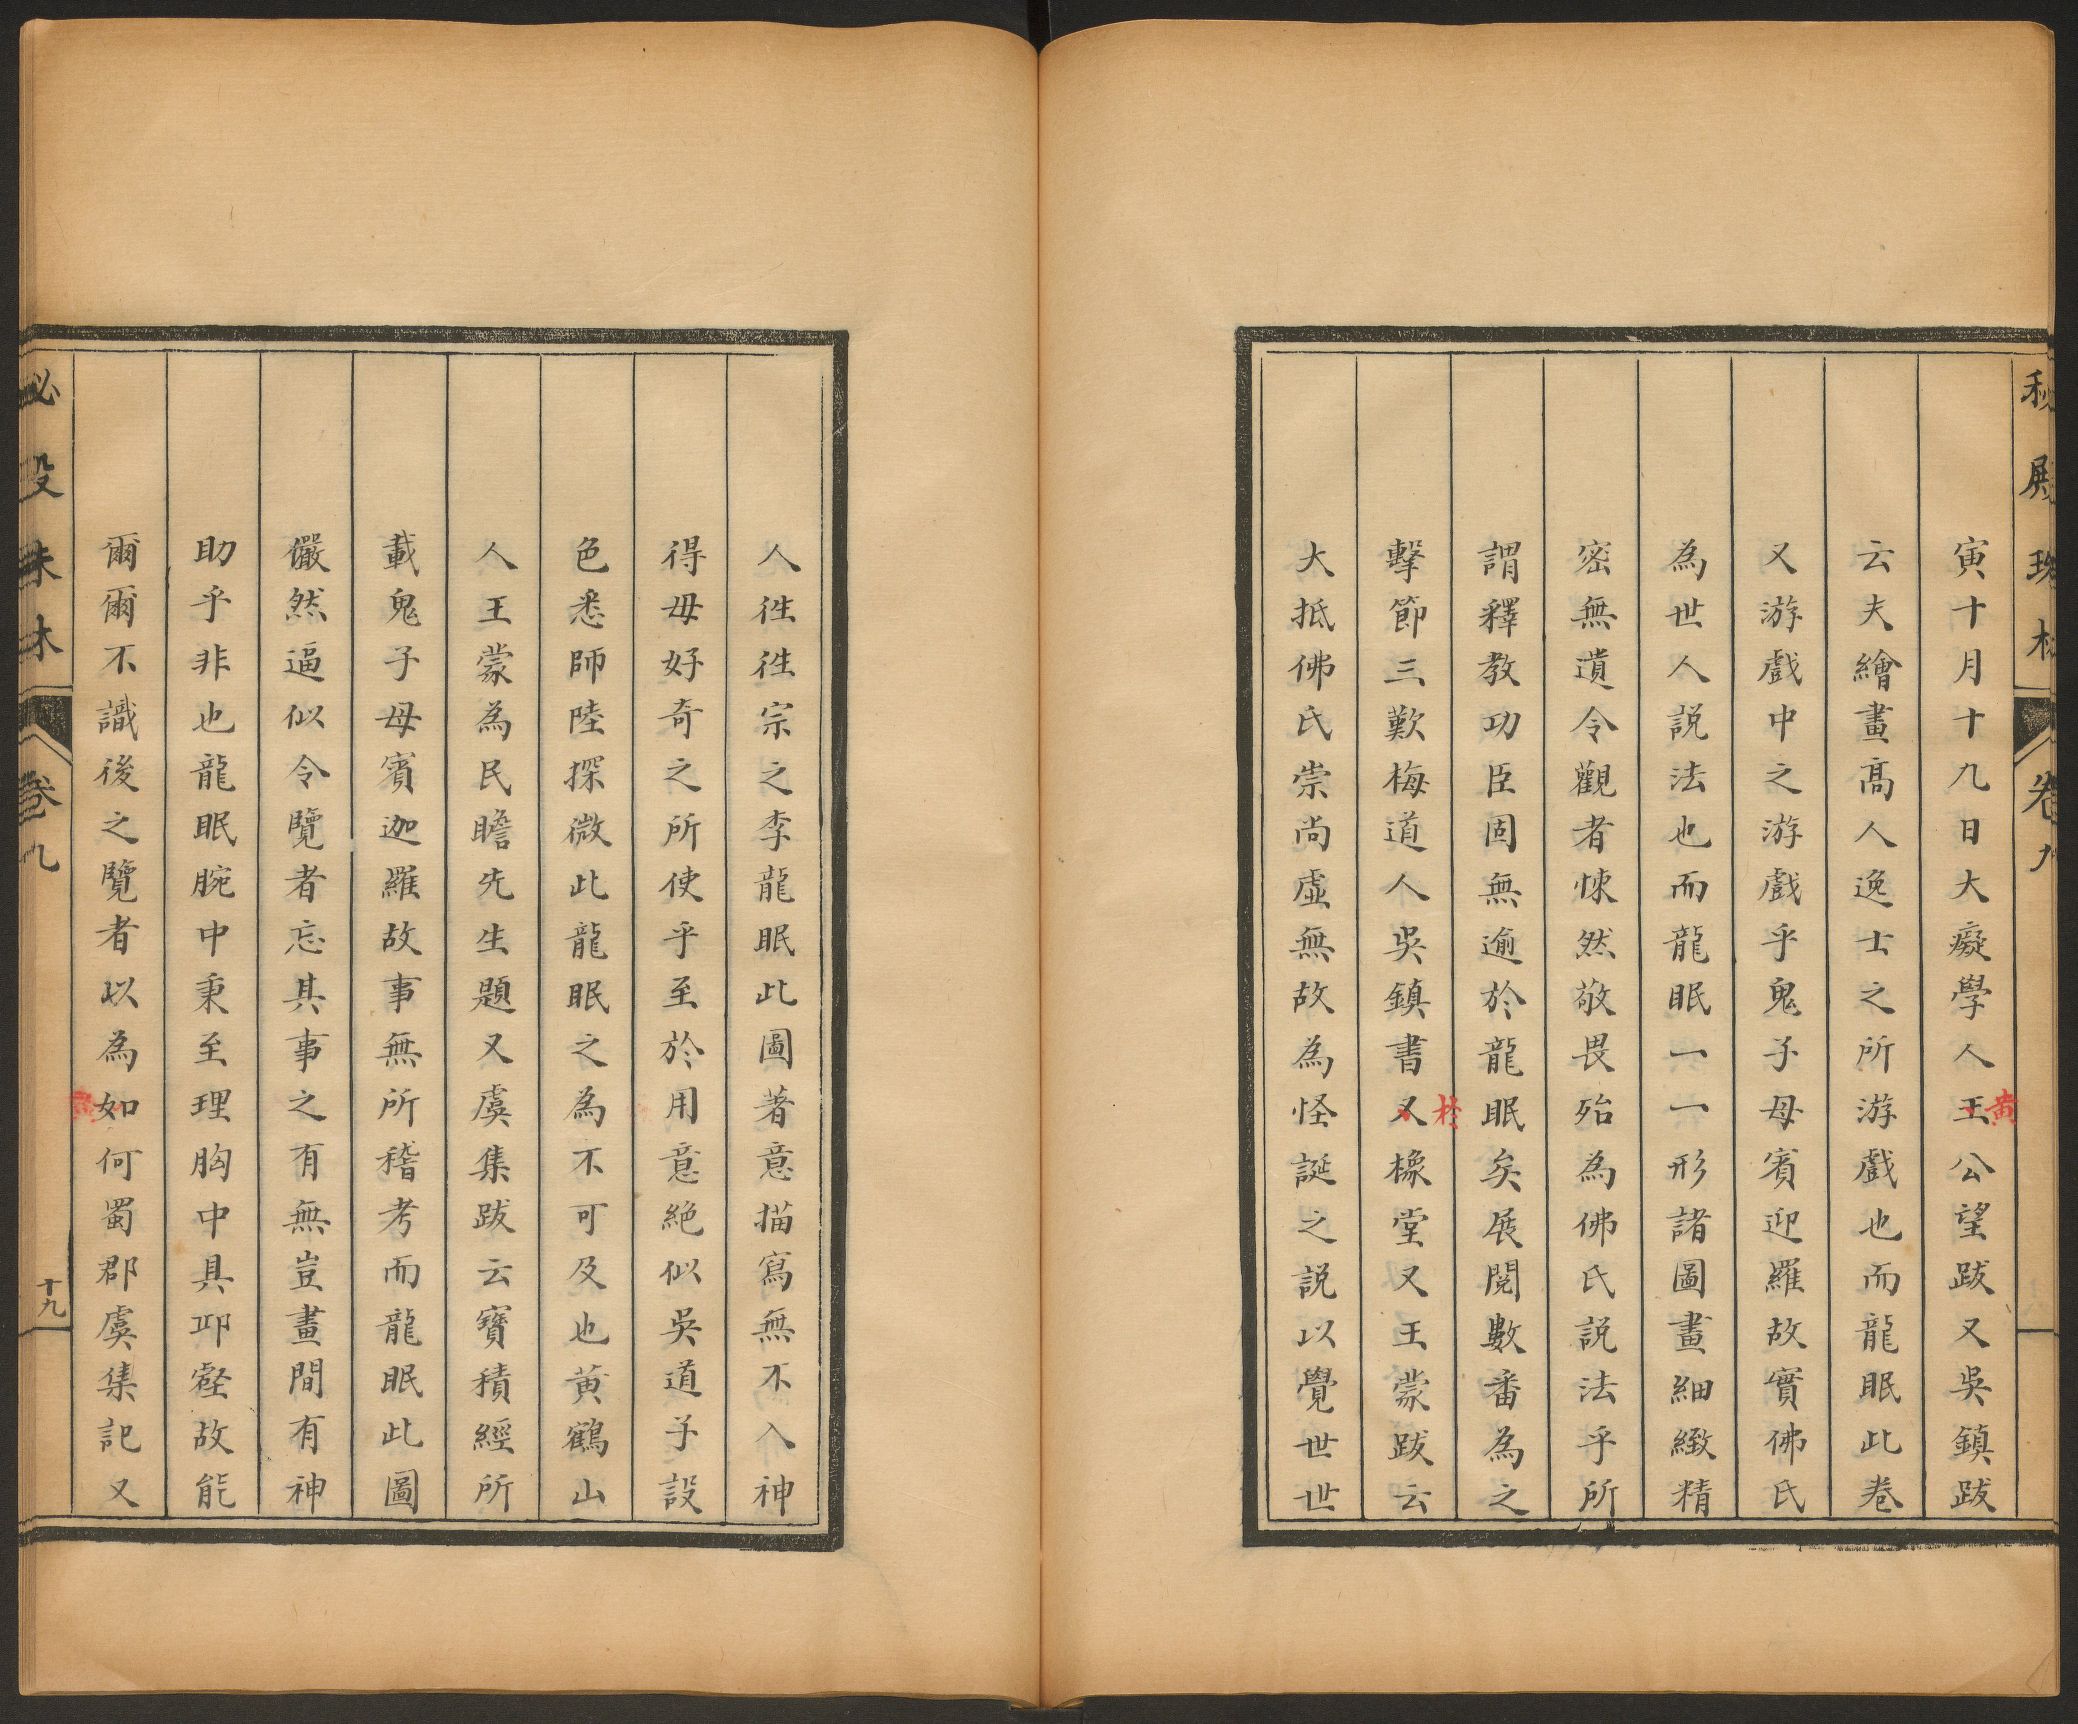 秘殿珠林
卷九
寅十月十九日大癡學人王公望跋又吳鎮跋
黄
云夫繪畫高人逸士之所游戲也而龍眠此卷
又游戲中之游戲乎鬼子母賓迎羅故實佛氏
為世人説法也而龍眠一一形諸圖畫細緻精
密無遺令觀者悚然敬畏殆為佛氏説法乎所
謂釋教功臣固無逾於龍眠矣展閱數番為之
擊節三歎梅道人吳鎮書又橡堂又王蒙跋云
大抵佛氏崇尚虛無故為怪誕之説以覺世世
人徃徃宗之李龍眠此圖著意描寫無不入神
得毋好奇之所使乎至於用意絶似吳道子設
色悉師陸探微此龍眠之為不可及也黄鶴山
人王蒙為民瞻先生題又虞集跋云寶積經所
載鬼子母賓迦羅故事無所稽考而龍眠此圖
儼然逼似令覽者忘其事之有無豈畫間有神
助乎非也龍眠腕中秉至理胸中具邱壑故能
爾爾不識後之覽者以為如何蜀郡虞集記又
秘殿珠林
卷九
十九